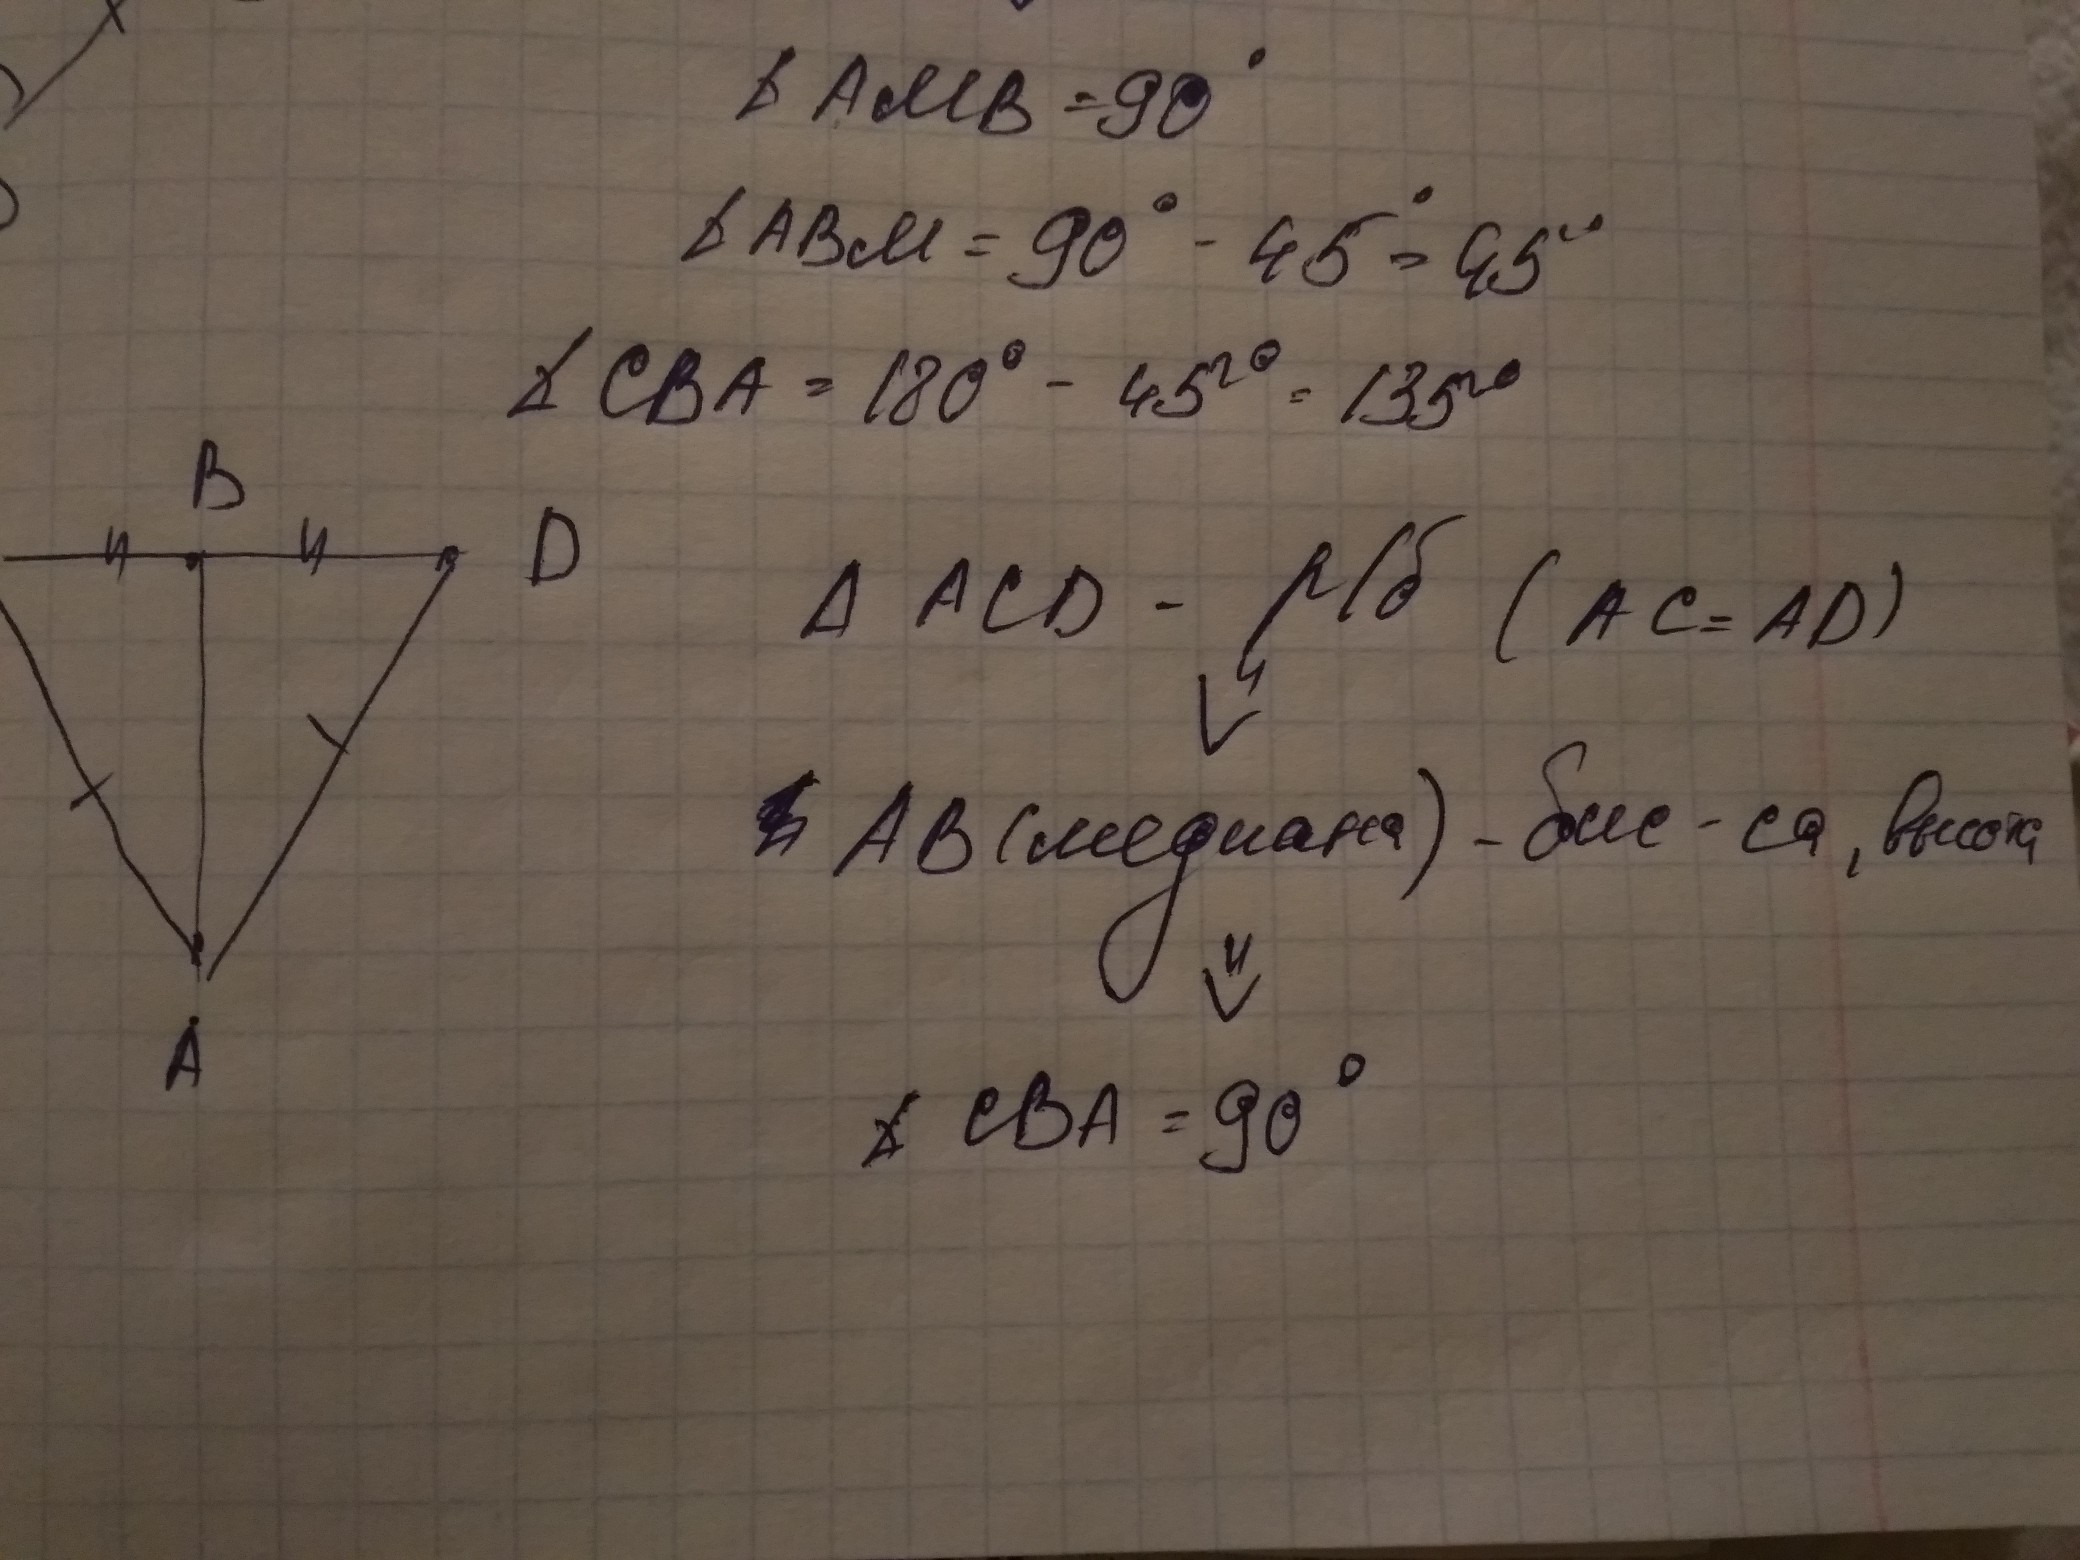 ∡ AMB = 90°
∡ ABM = 90° - 45° = 45°
∡ CBA = 180° - 45° = 135°
B
D
Δ ACD - р/б (AC = AD)
AB (медиана) - бис-са, высота
A
∡ CBA = 90°